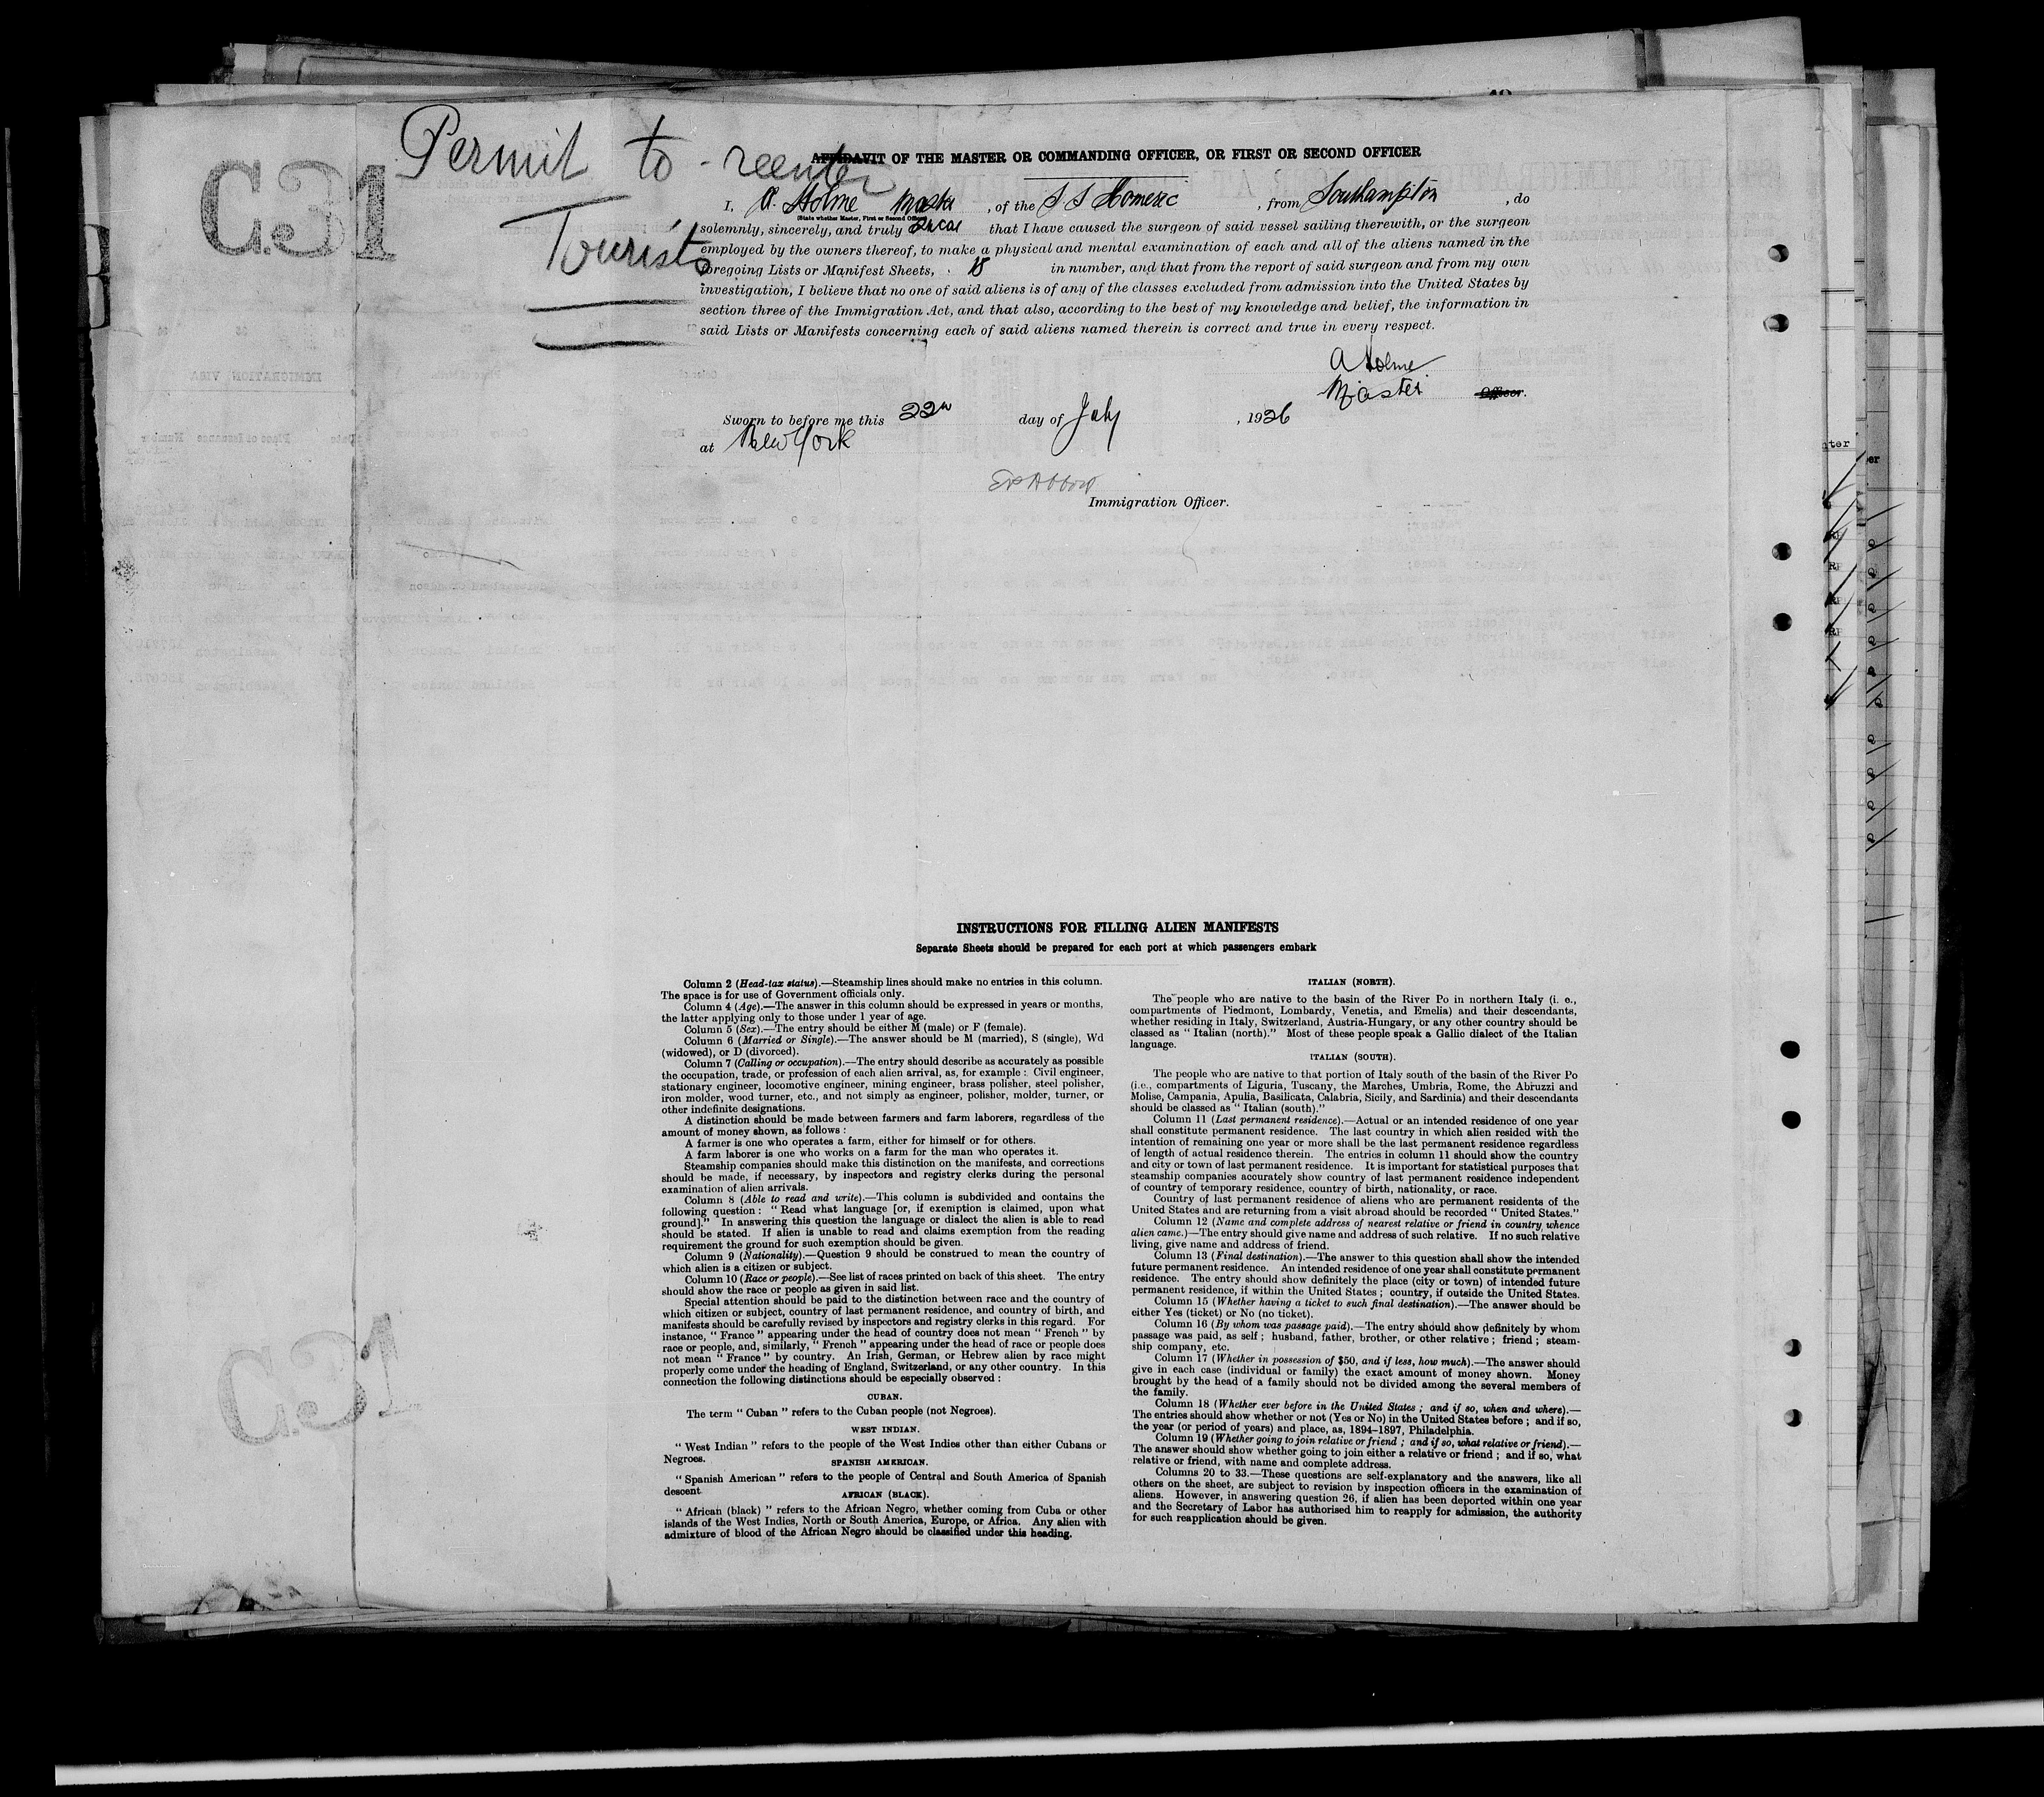 Permit to reenter
Tourists
C31
AFFIDAVIT OF THE MASTER OR COMMANDING OFFICER, OR FIRST OR SECOND OFFICER
I, A. Holme Master, of the S S Homeric, from Southampton, do
(State whether Master, First or Second Officer)
solemnly, sincerely, and truly swear that I have caused the surgeon of said vessel sailing therewith, or the surgeon
employed by the owners thereof, to make a physical and mental examination of each and all of the aliens named in the
foregoing Lists or Manifest Sheets, 18 in number, and that from the report of said surgeon and from my own
investigation, I believe that no one of said aliens is of any of the classes excluded from admission into the United States by
section three of the Immigration Act, and that also, according to the best of my knowledge and belief, the information in
said Lists or Manifests concerning each of said aliens named therein is correct and true in every respect.
A Holme
Master Officer.
Sworn to before me this 22n day of July, 1926
at New York
Immigration Officer.
INSTRUCTIONS FOR FILLING ALIEN MANIFESTS
Separate Sheets should be prepared for each port at which passengers embark
Column 2 (Head-tax status).—Steamship lines should make no entries in this column.
The space is for use of Government officials only.
Column 4 (Age).—The answer in this column should be expressed in years or months,
the latter applying only to those under 1 year of age.
Column 5 (Sex).—The entry should be either M (male) or F (female).
Column 6 (Married or Single).—The answer should be M (married), S (single), Wd
(widowed), or D (divorced).
Column 7 (Calling or occupation).—The entry should describe as accurately as possible
the occupation, trade, or profession of each alien arrival, as, for example : Civil engineer,
stationary engineer, locomotive engineer, mining engineer, brass polisher, steel polisher,
iron molder, wood turner, etc., and not simply as engineer, polisher, molder, turner, or
other indefinite designations.
A distinction should be made between farmers and farm laborers, regardless of the
amount of money shown, as follows :
A farmer is one who operates a farm, either for himself or for others.
A farm laborer is one who works on a farm for the man who operates it.
Steamship companies should make this distinction on the manifests, and corrections
should be made, if necessary, by inspectors and registry clerks during the personal
examination of alien arrivals.
Column 8 (Able to read and write).—This column is subdivided and contains the
following question : " Read what language [or, if exemption is claimed, upon what
ground]." In answering this question the language or dialect the alien is able to read
should be stated. If alien is unable to read and claims exemption from the reading
requirement the ground for such exemption should be given.
Column 9 (Nationality).—Question 9 should be construed to mean the country of
which alien is a citizen or subject.
Column 10 (Race or people).—See list of races printed on back of this sheet. The entry
should show the race or people as given in said list.
Special attention should be paid to the distinction between race and the country of
which citizen or subject, country of last permanent residence, and country of birth, and
manifests should be carefully revised by inspectors and registry clerks in this regard. For
instance, " France " appearing under the head of country does not mean " French " by
race or people, and, similarly, " French " appearing under the head of race or people does
not mean " France " by country. An Irish, German, or Hebrew alien by race might
properly come under the heading of England, Switzerland, or any other country. In this
connection the following distinctions should be especially observed :
CUBAN.
The term " Cuban " refers to the Cuban people (not Negroes).
WEST INDIAN.
" West Indian " refers to the people of the West Indies other than either Cubans or
Negroes.
SPANISH AMERICAN.
" Spanish American " refers to the people of Central and South America of Spanish
descent
AFRICAN (BLACK).
" African (black) " refers to the African Negro, whether coming from Cuba or other
islands of the West Indies, North or South America, Europe, or Africa. Any alien with
admixture of blood of the African Negro should be classified under this heading.
ITALIAN (NORTH).
The people who are native to the basin of the River Po in northern Italy (i. e.,
compartments of Piedmont, Lombardy, Venetia, and Emelia) and their descendants,
whether residing in Italy, Switzerland, Austria-Hungary, or any other country should be
classed as " Italian (north)." Most of these people speak a Gallic dialect of the Italian
language.
ITALIAN (SOUTH).
The people who are native to that portion of Italy south of the basin of the River Po
(i.e., compartments of Liguria, Tuscany, the Marches, Umbria, Rome, the Abruzzi and
Molise, Campania, Apulia, Basilicata, Calabria, Sicily, and Sardinia) and their descendants
should be classed as " Italian (south)."
Column 11 (Last permanent residence).—Actual or an intended residence of one year
shall constitute permanent residence. The last country in which alien resided with the
intention of remaining one year or more shall be the last permanent residence regardless
of length of actual residence therein. The entries in column 11 should show the country
and city or town of last permanent residence. It is important for statistical purposes that
steamship companies accurately show country of last permanent residence independent
of country of temporary residence, country of birth, nationality, or race.
Country of last permanent residence of aliens who are permanent residents of the
United States and are returning from a visit abroad should be recorded " United States."
Column 12 (Name and complete address of nearest relative or friend in country whence
alien came.)—The entry should give name and address of such relative. If no such relative
living, give name and address of friend.
Column 13 (Final destination).—The answer to this question shall show the intended
future permanent residence. An intended residence of one year shall constitute permanent
residence. The entry should show definitely the place (city or town) of intended future
permanent residence, if within the United States ; country, if outside the United States.
Column 15 (Whether having a ticket to such final destination).—The answer should be
either Yes (ticket) or No (no ticket).
Column 16 (By whom was passage paid).—The entry should show definitely by whom
passage was paid, as self ; husband, father, brother, or other relative ; friend ; steam-
ship company, etc.
Column 17 (Whether in possession of $50, and if less, how much).—The answer should
give in each case (individual or family) the exact amount of money shown. Money
brought by the head of a family should not be divided among the several members of
the family.
Column 18 (Whether ever before in the United States ; and if so, when and where).—
The entries should show whether or not (Yes or No) in the United States before ; and if so,
the year (or period of years) and place, as, 1894–1897, Philadelphia.
Column 19 (Whether going to join relative or friend ; and if so, what relative or friend).—
The answer should show whether going to join either a relative or friend ; and if so, what
relative or friend, with name and complete address.
Columns 20 to 33.—These questions are self-explanatory and the answers, like all
others on the sheet, are subject to revision by inspection officers in the examination of
aliens. However, in answering question 26, if alien has been deported within one year
and the Secretary of Labor has authorised him to reapply for admission, the authority
for such reapplication should be given.
C31